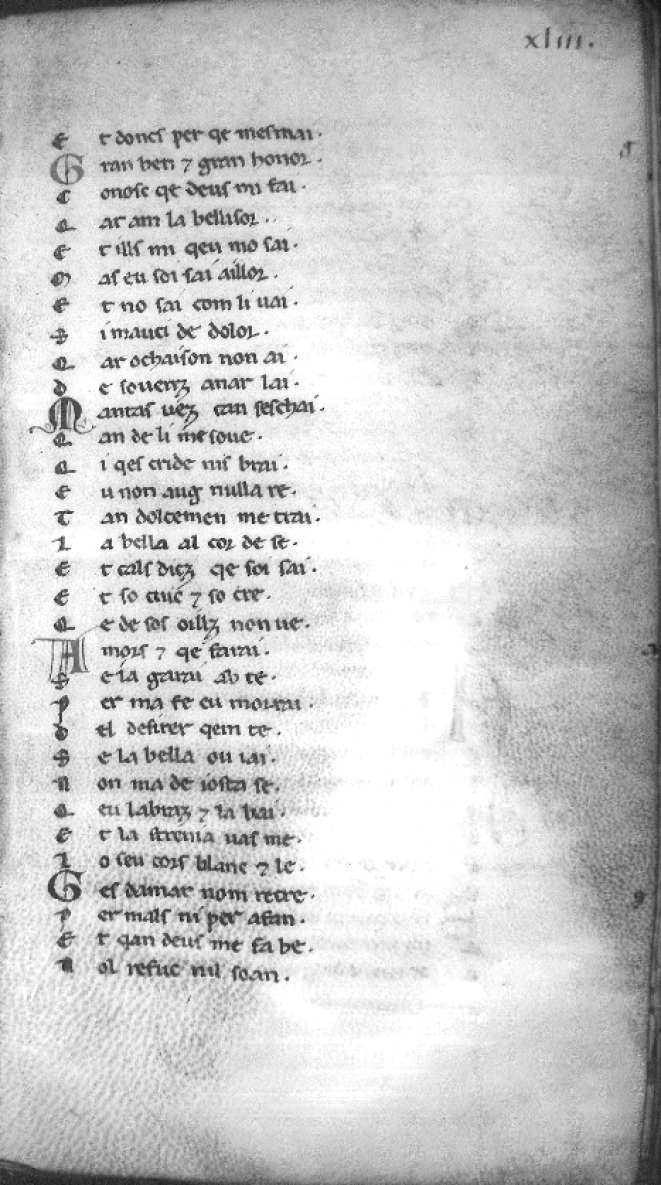 xliii.
E t doncs per qe mesmai.
G ran ben ⁊ gran honor.
C onosc qe deus mi fai.
Q ar am la bellisor.
E t ills mi qeu mo sai.
M as eu soi sai aillor.
E t no sai com li uai.
S i mauci de dolor.
Q ar ochaison non ai.
D e souenꝫ anar lai.
M antas ueꝫ tan seschai.
Q an de li me soue.
Q i qes cride nis brai.
E u non aug nulla re.
T an dolcemen me trai.
L a bella al cor de se.
E t tals diꝫ qe soi sai.
E t so cuie ⁊ so cre.
Q e de sos oillꝫ non ue.
A mors ⁊ qe farai.
S e ia garai ab te.
P er ma fe eu morrai.
D el desirer qem te.
S e la bella ou iai.
N on ma de iosta se.
Q eu labraꝫ ⁊ la bai.
E t la strenia uas me.
L o seu cors blanc ⁊ le.
G es damar nom recre.
P er mals ni per afan.
E t qan deus me fa be.
N ol refuc nil soan.